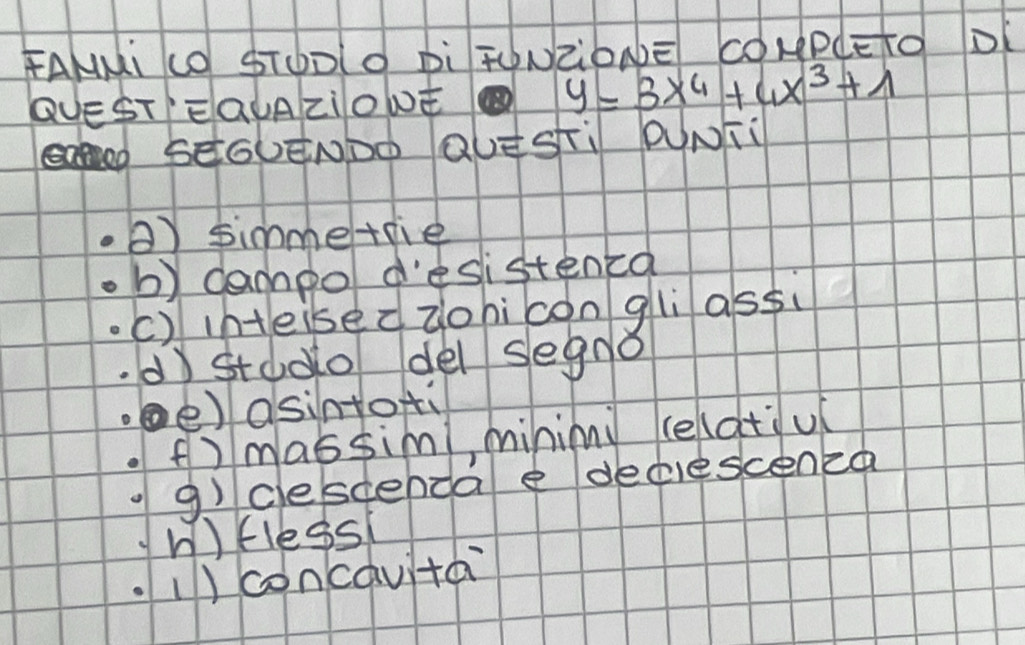 FAMMI LO STUDIO DI FUNZIONE COMPLETO DI
QUEST'EQUAZIONE y = 3x⁴ + 4x³ + 1
SEGUENDO QUESTI PUNTI
• a) simmetrie
• b) campo d'esistenza
• c) intersezzioni con gli assi
• d) studio del segno
• e) asintoti
• f) massimi, minimi relativi
• g) crescenza e decrescenza
• h) flessi
• i) concavità